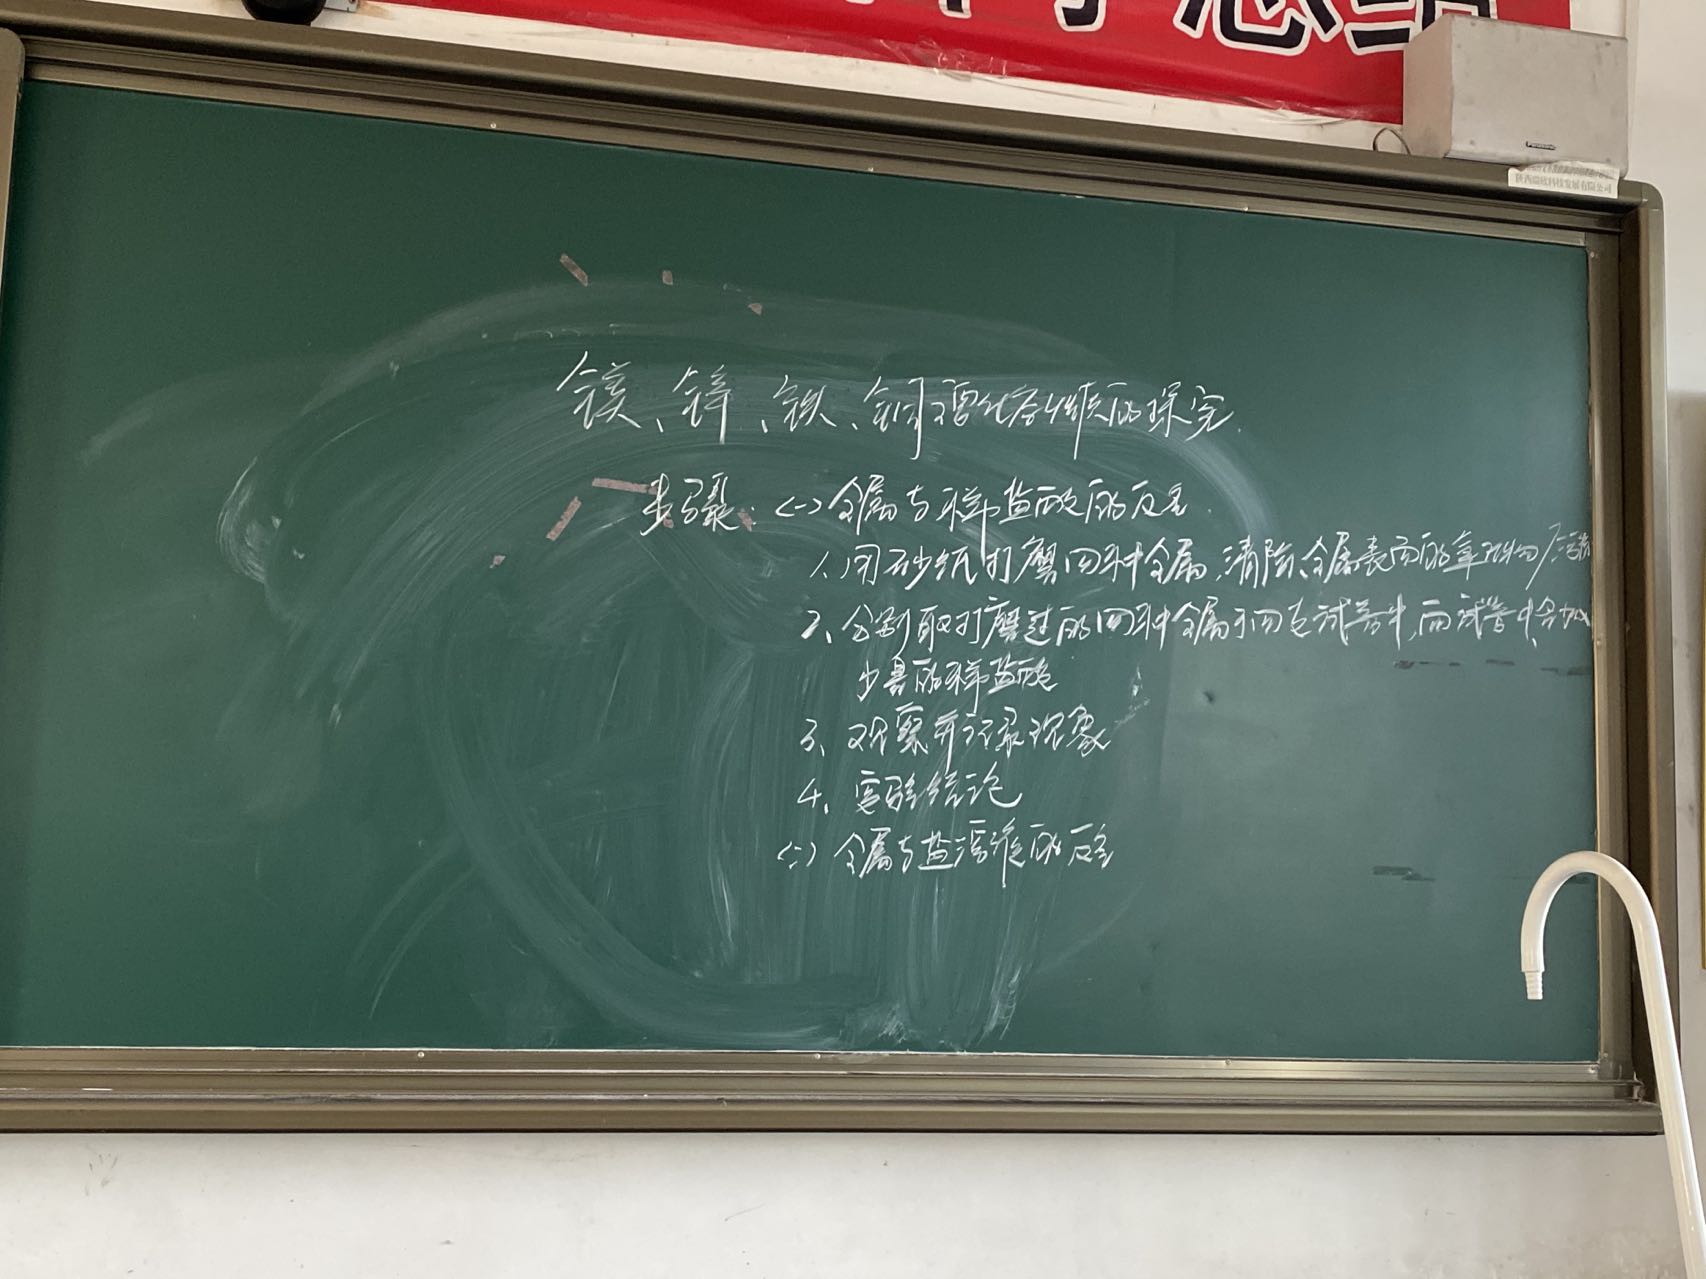 Panasonic
陕西瑞欧科技发展有限公司
镁、锌、铁、铜 化学性质的探究
步骤:(一)金属与稀盐酸的反应
1、用砂纸打磨四种金属,清除金属表面的氧化物
2、分别取打磨过的四种金属于四支试管中,向试管中加
少量的稀盐酸
3、观察并记录现象
4、实验结论
(二)金属与盐溶液的反应